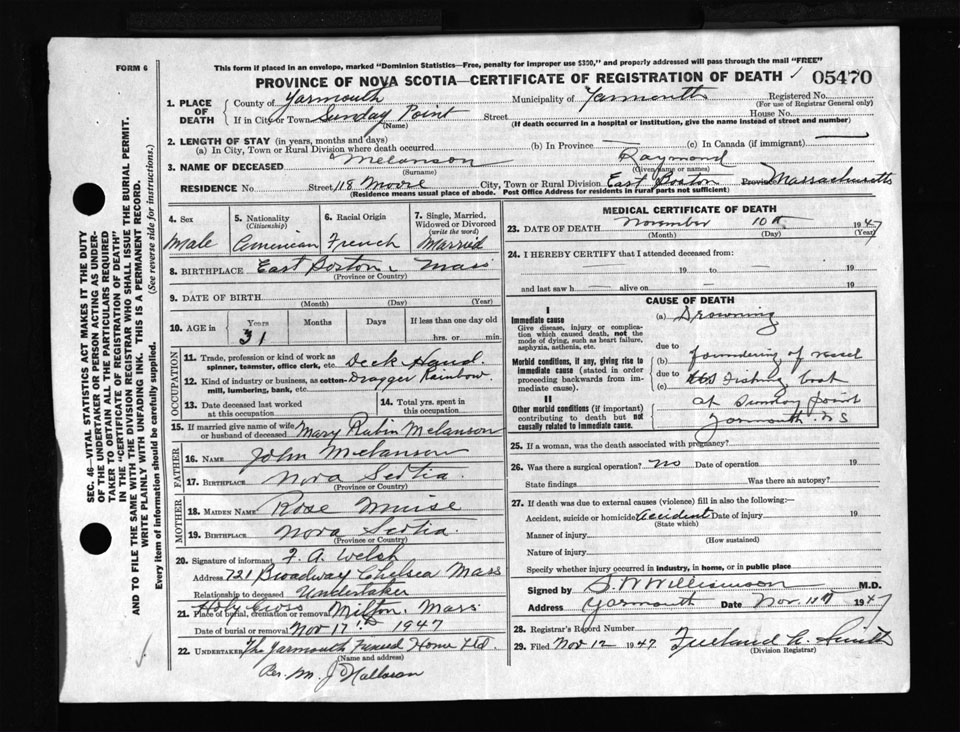 FORM 6
This form if placed in an envelope, marked "Dominion Statistics—Free, penalty for improper use $300," and properly addressed will pass through the mail "FREE"
PROVINCE OF NOVA SCOTIA—CERTIFICATE OF REGISTRATION OF DEATH 05470
1. PLACE OF DEATH County of Yarmouth Municipality of Yarmouth Registered No.
(For use of Registrar General only)
If in City or Town Sunday Point Street House No.
(Name) (If death occurred in a hospital or institution, give the name instead of street and number)
2. LENGTH OF STAY (in years, months and days)
(a) In City, Town or Rural Division where death occurred (b) In Province (c) In Canada (if immigrant)
3. NAME OF DECEASED Melanson Raymond
(Surname) (Given name or names)
RESIDENCE No. Street 118 Moore City, Town or Rural Division East Boston Province Massachusetts
(Residence means usual place of abode. Post Office Address for residents in rural parts not sufficient)
4. Sex Male
5. Nationality (Citizenship) American
6. Racial Origin French
7. Single, Married, Widowed or Divorced (write the word) Married
8. BIRTHPLACE East Boston, Mass
(Province or Country)
9. DATE OF BIRTH
(Month) (Day) (Year)
10. AGE in Years Months Days If less than one day old
31 hrs. or min.
OCCUPATION
11. Trade, profession or kind of work as spinner, teamster, office clerk, etc. Deck Hand.
12. Kind of industry or business, as cotton-mill, lumbering, bank, etc. Dragger Rainbow.
13. Date deceased last worked at this occupation
14. Total yrs. spent in this occupation
15. If married give name of wife or husband of deceased Mary Rubin Melanson
FATHER
16. NAME John Melanson
17. BIRTHPLACE Nova Scotia
(Province or Country)
MOTHER
18. MAIDEN NAME Rose Muise
19. BIRTHPLACE Nova Scotia.
(Province or Country)
20. Signature of informant F. A. Welsh
Address 721 Broadway Chelsea Mass
Relationship to deceased Undertaker
21. Place of burial, cremation or removal Holy Cross Milton, Mass
Date of burial or removal Nov 17 1947
22. UNDERTAKER The Yarmouth Funeral Home Ltd.
(Name and address)
Per. M. J. Halloran
MEDICAL CERTIFICATE OF DEATH
23. DATE OF DEATH November 10th 1947
(Month) (Day) (Year)
24. I HEREBY CERTIFY that I attended deceased from:
19 to 19
and last saw h alive on 19
CAUSE OF DEATH
I
Immediate cause (a) Drowning
Give disease, injury or complication which caused death, not the mode of dying, such as heart failure, asphyxia, asthenia, etc.
due to
Morbid conditions, if any, giving rise to immediate cause (stated in order proceeding backwards from immediate cause).
(b) foundering of vessel
due to
(c) Fishing boat
II
Other morbid conditions (if important) contributing to death but not causally related to immediate cause.
at Sunday point
Yarmouth NS
25. If a woman, was the death associated with pregnancy?
26. Was there a surgical operation? no Date of operation 19
State findings Was there an autopsy?
27. If death was due to external causes (violence) fill in also the following:—
Accident, suicide or homicide Accident Date of injury 19
(State which)
Manner of injury
(How sustained)
Nature of injury
Specify whether injury occurred in industry, in home, or in public place
Signed by S. W. Williamson M.D.
Address Yarmouth Date Nov. 1947
28. Registrar's Record Number
29. Filed Nov 12 1947
(Division Registrar)
SEC. 46—VITAL STATISTICS ACT MAKES IT THE DUTY
OF THE UNDERTAKER OR PERSON ACTING AS UNDER-
TAKER TO OBTAIN ALL THE PARTICULARS REQUIRED
IN THE "CERTIFICATE OF REGISTRATION OF DEATH"
AND TO FILE THE SAME WITH THE DIVISION REGISTRAR WHO SHALL ISSUE THE BURIAL PERMIT.
WRITE PLAINLY WITH UNFADING INK. THIS IS A PERMANENT RECORD.
Every item of information should be carefully supplied. (See reverse side for instructions.)